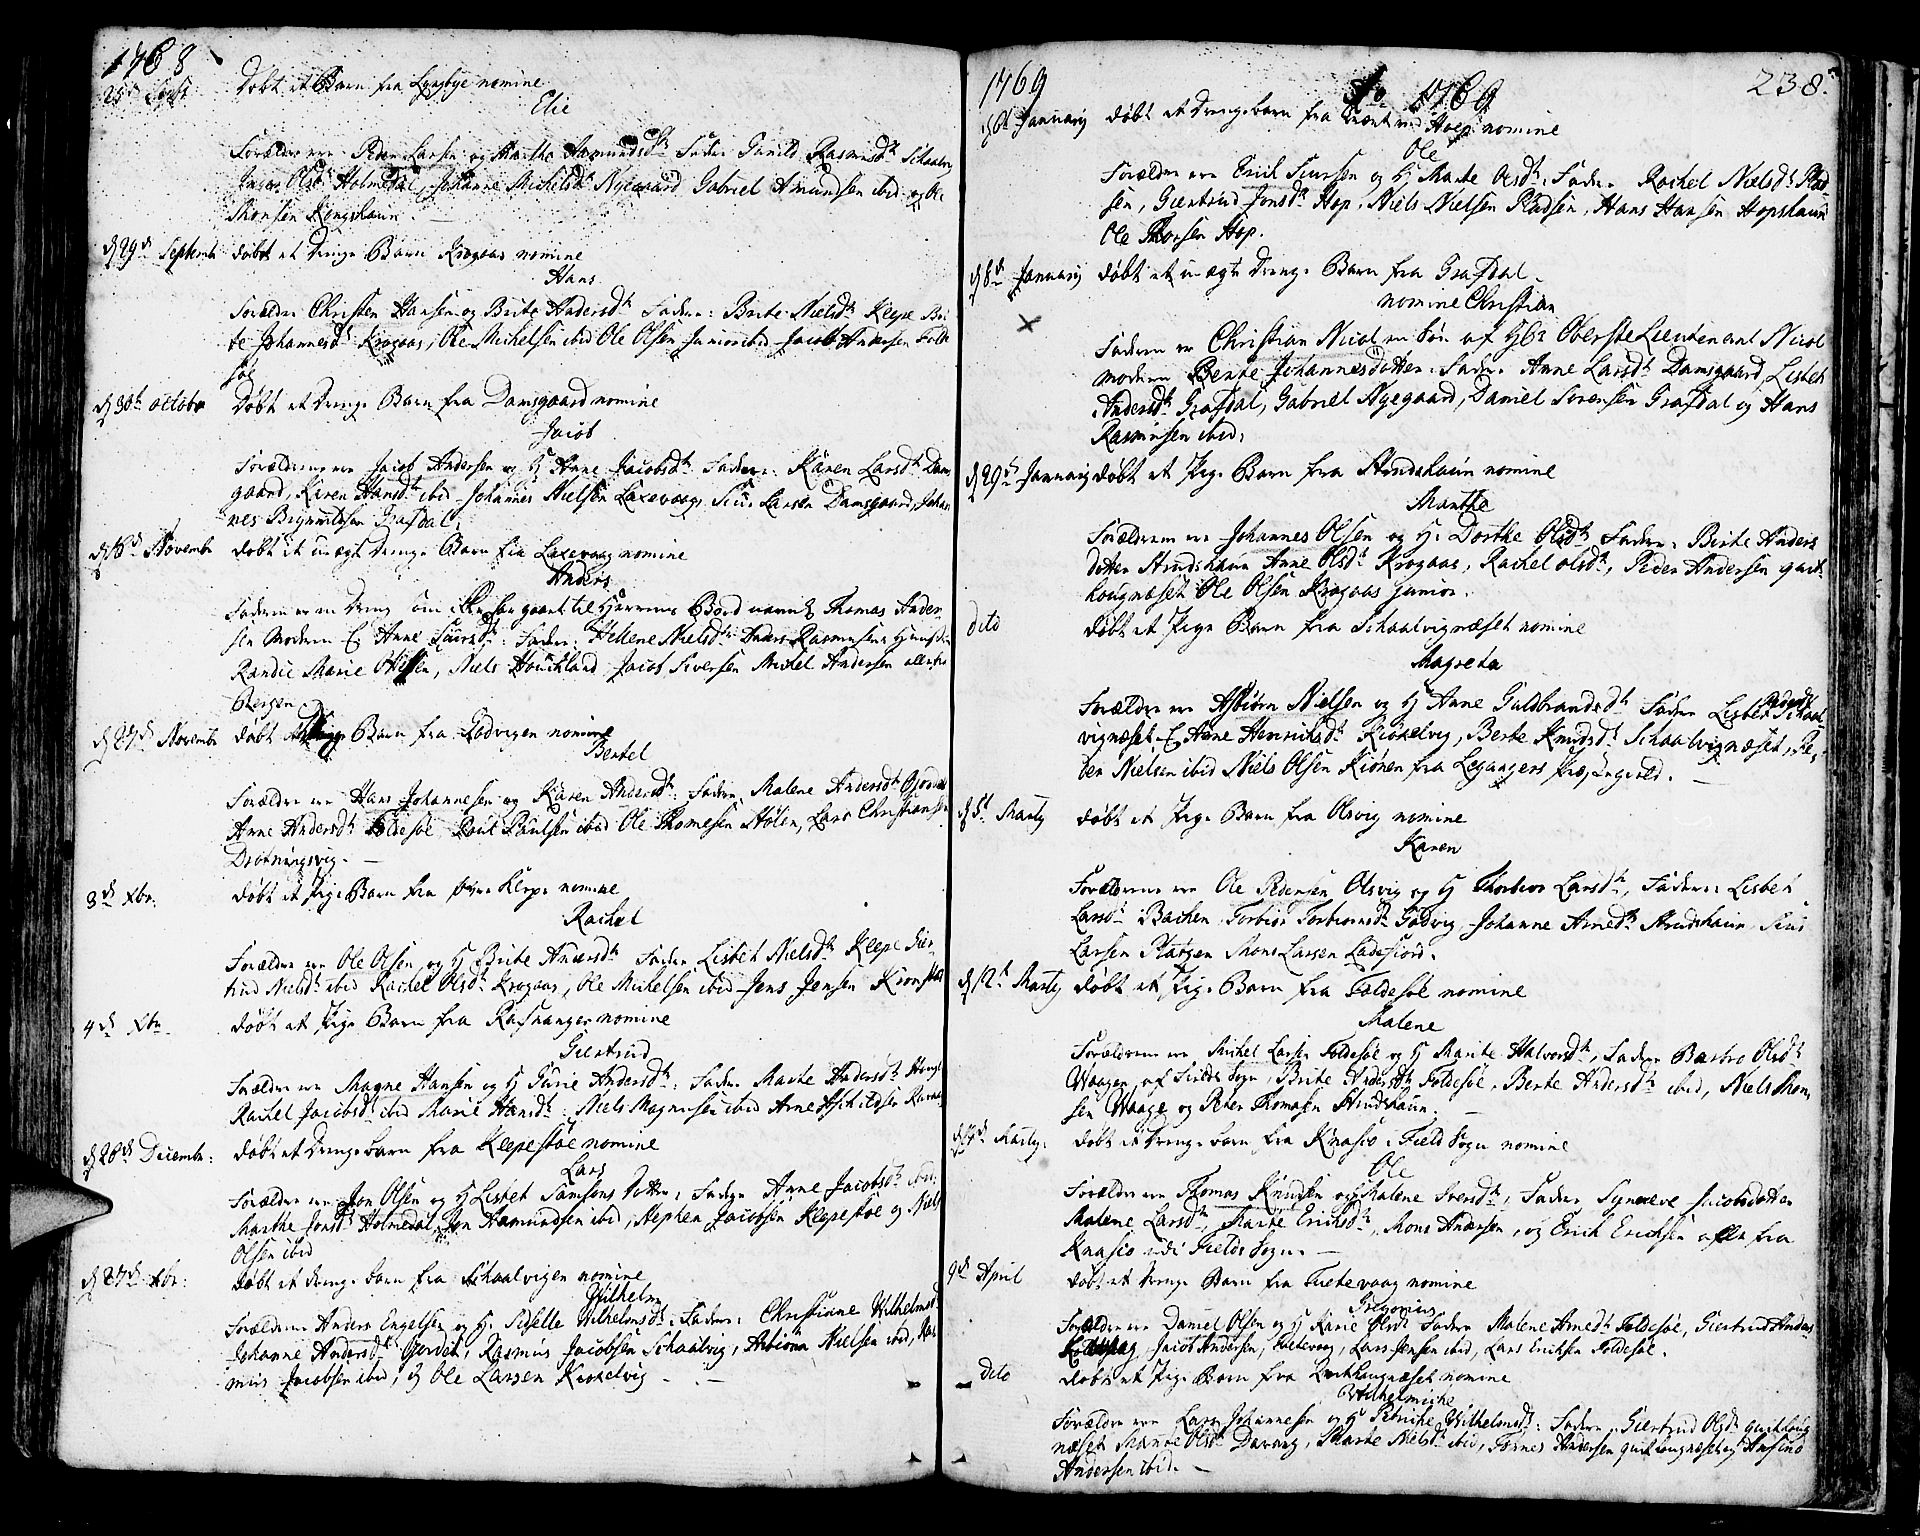 1768
25d Septbr: Døbt et Barn fra Lyngbye nomine
Elie
Forældrene Peder Larsen og Marthe Amundsdr Fadder: Gunild Rasmusdr Schaalvig
Inger Olsdr Holmedal, Johanne Michelsdr Nyegaard Gabriel Amundsen ibid og Ole
Monsen Kongshaun.
d 29d Septembr døbt et Drenge Barn Krogaas nomine
Hans
Forældre Christen Hansen og Brite Andersdr Fadder: Brite Nielsdr Kleppe Bri-
te Johannesdr Krogaas, Ole Michelsen ibid Ole Olsen Junior ibid Jacob Andersen Folde-
søe
d 30th octobr Døbt et Drenge Barn fra Damsgaard nomine
Jacob
Forældrene er Jacob Andersen og H Anne Jacobsdr Fadder: Karen Larsdr Dams
gaard, Karen Hansdr ibid Johannes Nielsen Laxevaag, Siur Larsen Damsgaard, Johan
nes Brynildsen Grafdal.
d 6d Novembr døbt et uægt Drenge Barn fra Laxevaag nomine
Anders
Faderen er en Dreng som ikke har gaaet til Herrens Bord navnl Thomas Ander-
sen Moderen E Anne Siursdr: Fadder: Hellene Nielsdr Anders Rasmusens Huustru
Randie Marie Olsen, Niels Houchland Jacob Siversen Michel Andersen alle fra
Bergen
d 27d Novembr døbt Drenge Barn fra Godvigen nomine
Bertel
Forældre er Hans Johannesen og Karen Andersdr: Fadder Malene Andersdr Gjerde
Anne Andersdr Foldesøe Poul Poulsen ibid Ole Thomesen Stølen, Lars Christiansen
Drotningsvig.
3d Xbr: døbt et Pige Barn fra Kleppe nomine
Rachel
Forældre er Ole Olsen og H Brite Andersdr Fadder Lisbet Nielsdr Kleppe Gier-
trud Nielsdr ibid Rachel Olsdr Krogaas, Ole Michelsen ibid Jens Jensen Kronstad
4d Xbr. døbt et Pige Barn fra Rafnanger nomine
Giertrud
Forældre er Magne Hansen og H Guri Andersdr: Fadder Marte Andersdr Hangl
Rachel Jacobsdr ibid Marie Hansdr: Niels Magnusen ibid Arne Aschildsen Ravna
d 26d Decembr: døbt et Drenge barn fra Kleppestøe nomine
Lars
Forældre er Jon Olsen og H Lisbet Samsons Dotter: Fadder Anne Jacobsdr ibid.
Marthe Jonsdr Holmedal Jon Aamundsen ibid, Stephen Jacobsen Kleppestøe og Niels
Olsen ibid
d 27d Xbr: døbt et drenge barn fra Schaalvigen nomine
Wilhelm
Forældrene Anders Engelsen og H: Sidselle Wilhelmsdr: Fadder: Christiane Wilhelmsdr
Johanne Andersdr Gierdet, Rasmus Jacobsen Schaalvig, Asbiørn Nielsen ibid, Ras
mus Jacobsen ibid, og Ole Larsen Kirkelvig
1769
Ao 1769 238.
d 6t January døbt et Drenge barn fra Hop nomine
Ole
Forældre ere Erich Siursen og H Marte Olsdr: Fadder Rachel Nielsdr Klad-
sen, Giertrud Jonsdr Hop. Niels Nielsen Kladsen, Hans Hansen Hopshaun
Ole Thorsen Hop.
d 8d January døbt et uægte Drenge Barn fra Grafdal
nomine Christian
× Faderen er Christian Nicol en Søn af Hr: Oberste Lieutenant Nicol
moderen Bente Johannesdatter. Fadder Anne Larsdr Damsgaard, Lisbet
Andersdr Grafdal, Gabriel Nyegaard, Daniel Sørensen Grafdal og Hans
Rasmusen ibid:
d 29de January døbt et Pige Barn fra Strudshavn nomine
Marthe
Forældrene ere Johannes Olsen og H. Dorthe Olsdr Fadder. Birte Anders
dotter Strudshavn Anne Olsdr Krogaas, Rachel olsdr, Peder Andersen qvit-
hougnæset Ole Olsen Krogaas junior.
dito døbt et Pige Barn fra Schaalvignæset nomine
Magreta
Forældre ere Asbiørn Nielsen og H Anne Guldbrandsdr Fadder Lisbet Pedersdr Schaal-
vignæset E Anne Henrichsdr Kirkelvig, Berte Knudsdr Schaalvignæset, Pe-
ter Nielsen ibid Niels Olsen Kiønen fra Leganger Præstegield.
d 5t Marty døbt et Pige Barn fra Olsvig nomine
Karen
Forældrene ere Ole Pedersen Olsvig og H Thorbiør Larsdr, Fadder: Lisbet
Larsdr Bachen Torbiør Torbiornsdr Godvig, Johanne Arnedr Strudshavn, Siur
Larsen Klatzen Mons Larsen Ladefiord.
d 12t Marty døbt et Pige Barn fra Foldesøe nomine
Malene
Forældrene ere Michel Larsen Foldesøe og H Marite Halvorsdr, Fadder Barbro Olsdr
Waagen af Fields Sogn, Brite Andersdr Foldesøe. Berte Andersdr ibid, Niels Mon
sen Waage og Peter Thomasen Strudshavn.
d Marty: døbt et Drenge barn fra Knasio i Field Sogn nomine
Ole
Forældre ere Thomas Knudsen og Malene Iversdr, Fadder Synneve Jacobsdotter
Malene Larsdr, Marte Erichsdr, Mons Andersen, og Erich Erichsen alle fra
Knasio udi Fields Sogn.
9d April døbt et Drenge Barn fra Tueteevaag nomine
Gregorius
Forældre ere Daniel Olsen og H Karie Olsdr Fadder Malene Arnedr Foldesøe, Giertrud Anders
Jacob Andersen, Tuetevaag, Lars Jensen ibid, Lars Erichsen Foldesøe.
Dito døbt et Pige Barn fra qvithougnæset nomine
Wilhelmiche
Forældre ere Lars Johannesen og H Petriche Wilhelmsdr: Fadder: Giertrud Olsdr qvithoug
næset Marite Olsdr Davang, Marte Nielsdr ibid, Tønnes Andersen qvithougnæset og
Andersen ibid.